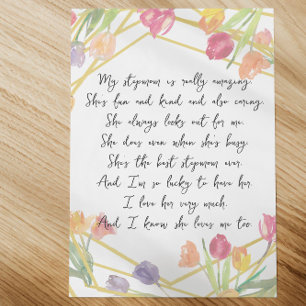 My stepmom is really amazing.
She's fun and kind and also caring.
She always looks out for me.
She does even when she's busy.
She's the best stepmom ever.
And I'm so lucky to have her.
I love her very much.
And I know she loves me too.